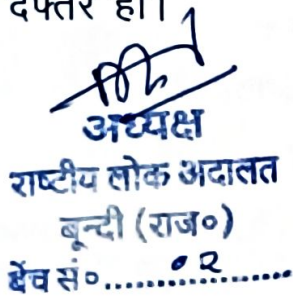 दफ्तर हो।
अध्यक्ष
राष्टीय लोक अदालत
बून्दी (राज०)
बेंच सं०..........०२..........